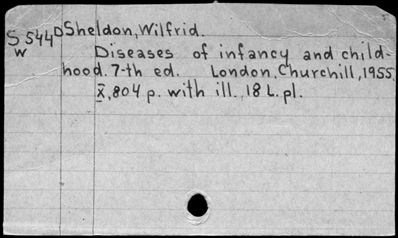 S 544D Sheldon, Wilfrid.
W Diseases of infancy and child-
hood. 7-th ed. London, Churchill, 1955.
X, 804 p. with ill., 18 L. pl.